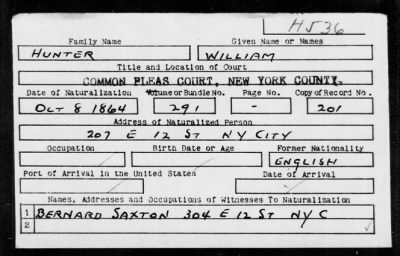 H536
Family Name Given Name or Names
HUNTER WILLIAM
Title and Location of Court
COMMON PLEAS COURT, NEW YORK COUNTY.
Date of Naturalization Volume or Bundle No. Page No. Copy of Record No.
OCT 8 1864 291 - 201
Address of Naturalized Person
207 E 12 ST NY CITY
Occupation Birth Date or Age Former Nationality
ENGLISH
Port of Arrival in the United States Date of Arrival
Names, Addresses and Occupations of Witnesses To Naturalization
1 BERNARD SAXTON 304 E 12 ST NYC
2